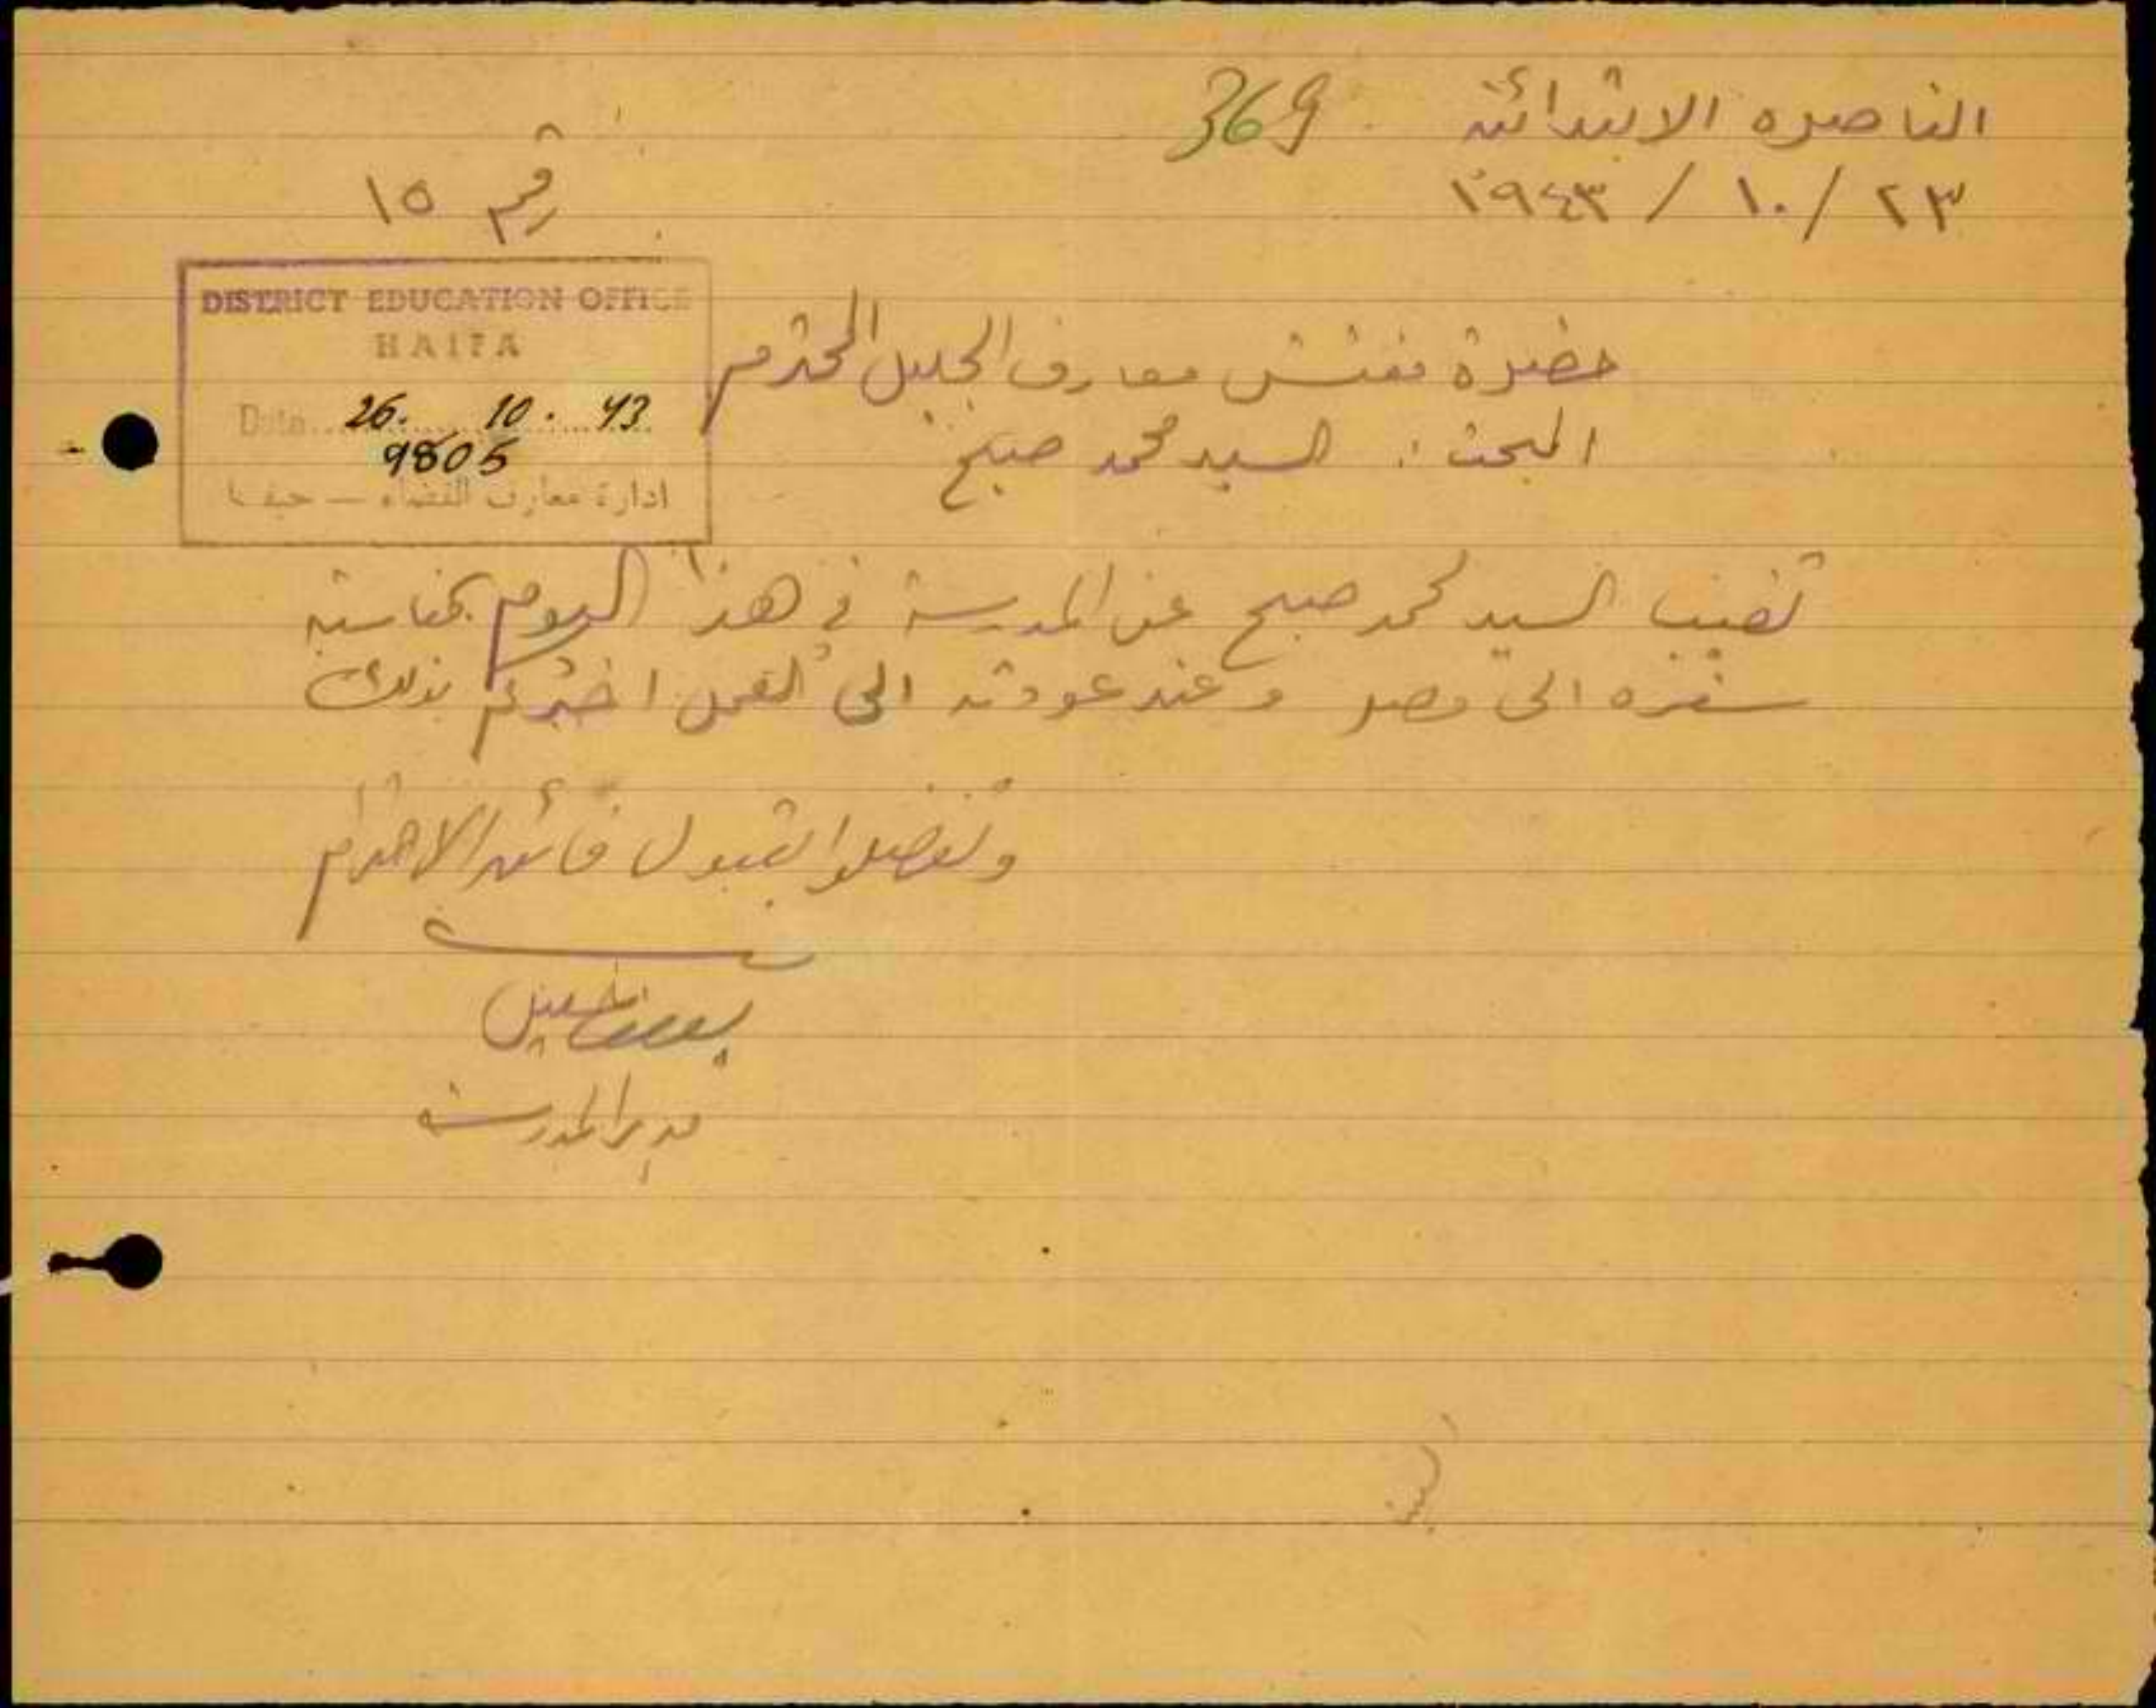 الناصره الابتدائيه 369
٢٣ / ١٠ / ١٩٤٣
رقم ١٥
DISTRICT EDUCATION OFFICE
HAIFA
Date 26. 10. 43
9805
ادارة معارف القضاء — حيفا
حضرة مفتش معارف الجليل المحترم
المبحث : السيد محمد صبح
تغيب السيد محمد صبح عن المدرسة في هذا اليوم بمناسبة
سفره الى مصر وعند عودته الى العمل اخبركم بذلك
وتفضلوا بقبول فائق الاحترام
مدير المدرسة